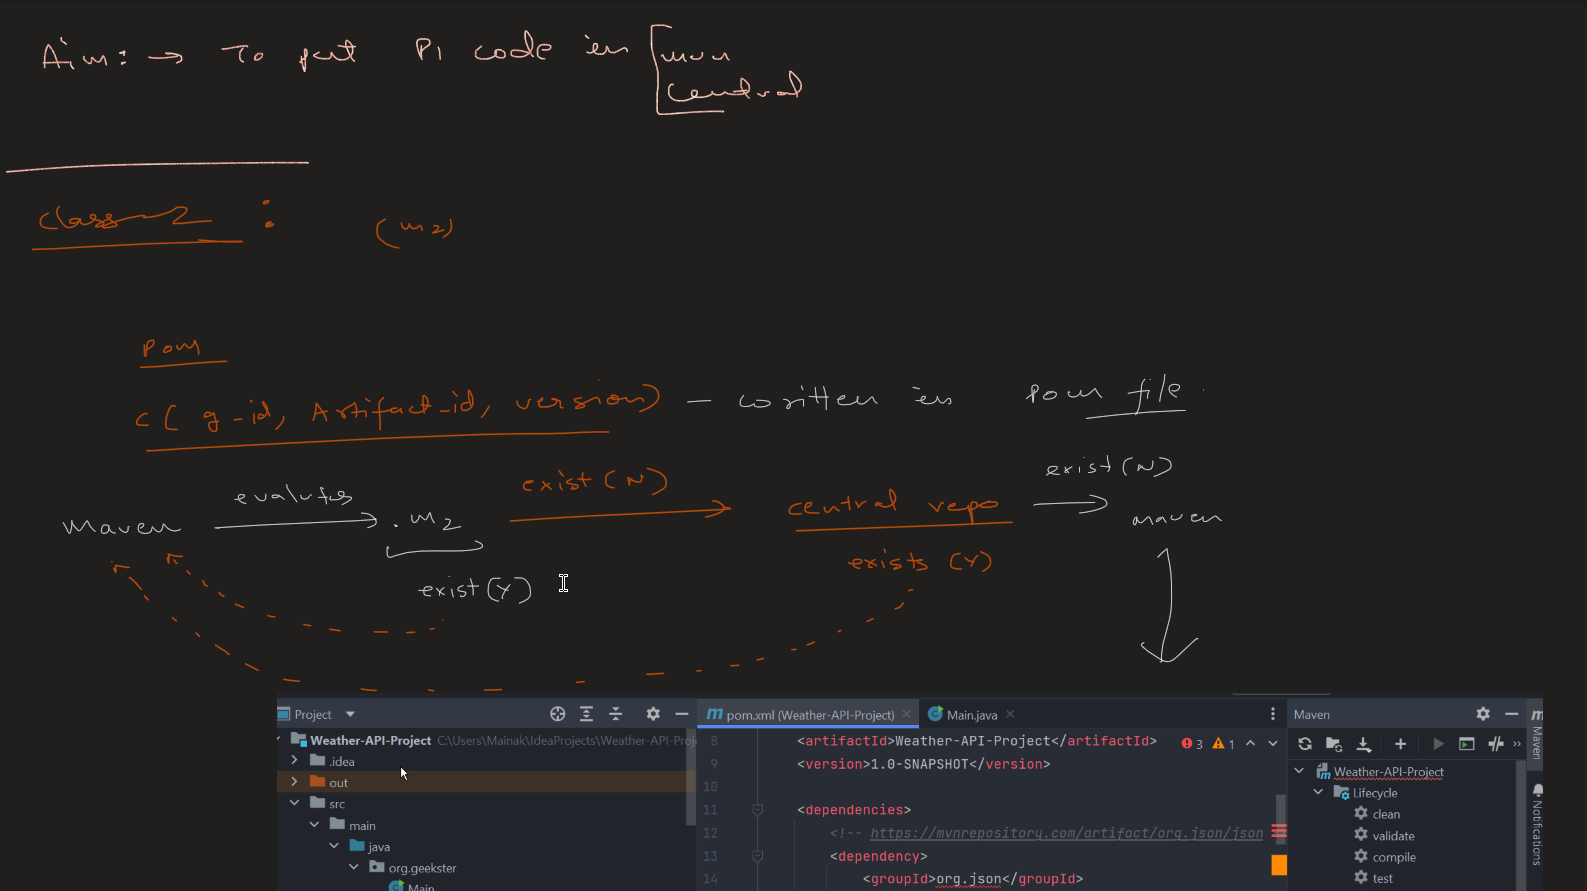 Aim: → To put P1 code in [mvn
central
class-2 : (m2)
Pom
c( g-id, Artifact-id, version) — written in Pom file
Maven evalutes .m2 exist (N) central repo exist (N) maven
exist (Y) exists (Y)
Project
Weather-API-Project C:\Users\Mainak\IdeaProjects\Weather-API-Proj
.idea
out
src
main
java
org.geekster
Main
pom.xml (Weather-API-Project) Main.java
8 <artifactId>Weather-API-Project</artifactId> 3 1
9 <version>1.0-SNAPSHOT</version>
10
11 <dependencies>
12 <!-- https://mvnrepository.com/artifact/org.json/json
13 <dependency>
14 <groupId>org.json</groupId>
Maven
Weather-API-Project
Lifecycle
clean
validate
compile
test
Maven
Notifications